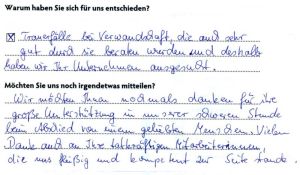 Warum haben Sie sich für uns entschieden?
☒ Trauerfälle bei Verwandschaft, die auch sehr
gut durch sie beraten wurden und deshalb
haben wir Ihr Unternehmen ausgesucht.
Möchten Sie uns noch irgendetwas mitteilen?
Wir möchten Ihnen nochmals danken für ihre
große Unterstützung in unserer schweren Stunde
beim Abschied von einem geliebten Menschen. Vielen
Dank auch an Ihre tatkräftigen Mitarbeiterinnen,
die uns fleißig und kompetent zur Seite stande.